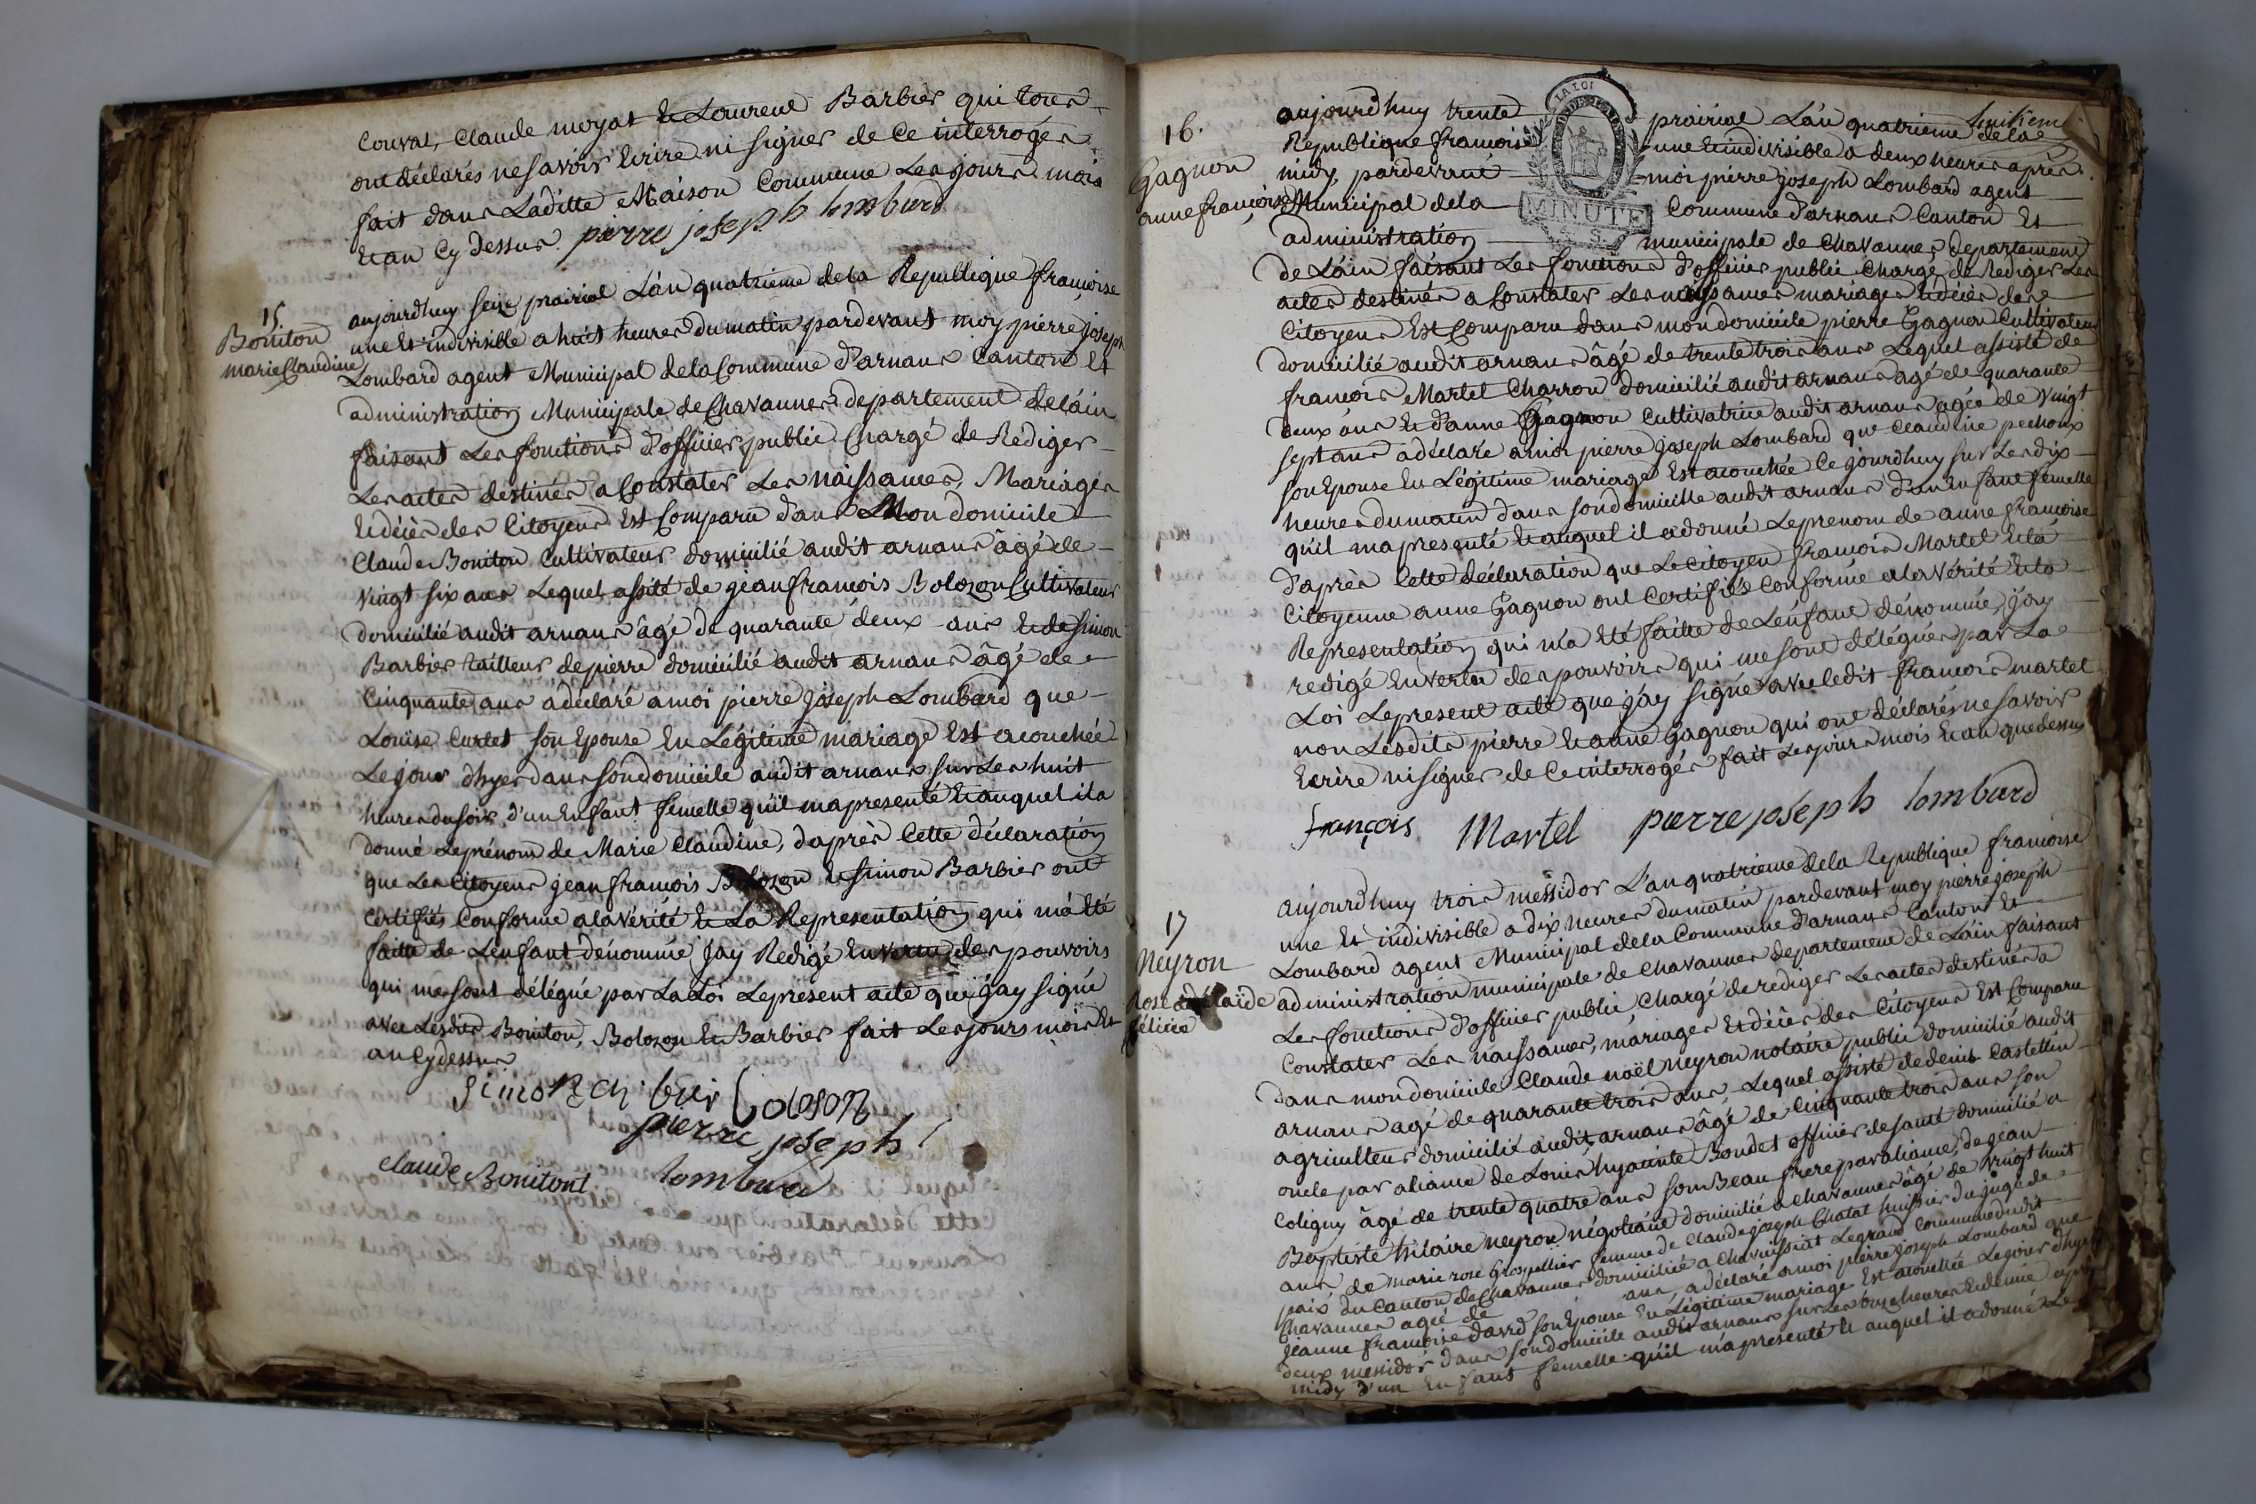 Couvat, Claude moyat & Laurent Barbier qui tous
ont déclarés ne savoir Ecrire ni signer de Ce interrogés
fait dans Laditte Maison Commune Les jours mois
Et an Cy Dessus pierre joseph lombard
15
Boniton
marie Claudine
aujourdhuy seize prairial L'an quatrieme dela Republique françoise
une Et indivisible a huit heures du matin pardevant moy pierre joseph
Lombard agent Municipal dela Commune d'arnans Canton Et
administration Municipale de Chavannes departement de Láin
faisant Les fonctions d'officier public Chargé de Rédiger
Les actes destinés a Constater Les naissances, Mariages
Et décès des Citoyens Est Comparu dans Mon domicile
Claude Boniton Cultivateur domicilié audit arnans âgé de
vingt six ans Lequel assité de jean françois Bolozon Cultivateur
domicilié audit arnans âgé de quarante deux ans Et de Simon
Barbier tailleur de pierre domicilié audit arnans âgé de
Cinquante ans a déclaré a moi pierre joseph Lombard que
Louise Curtet son Epouse En Légitime mariage Est acouchée
Le jour dhyer dans son domicile audit arnans sur Les huit
heures du soir d'un Enfant femelle qu'il ma presenté Et auquel il a
donné Le prénom de Marie Claudine, daprès Cette déclaration
que Les Citoyens jean françois Bolozon Et Simon Barbier ont
Certifiés Conforme a la Vérité Et La Representation qui ma Eté
faitte de Lenfant dénommée jay Redigé En vertu des pouvoirs
qui me sont délégué par La Loi Le present acte que jay signé
avec Lesdits Boniton, Bolozon Et Barbier fait Les jours mois Et
an Cy dessus
Simon Barbier bolozon
pierre joseph
Claude Bonitont lombard
16.
Gagnon
anne françoise
LA LOI
MINUTE
aujourdhuy trente prairial L'an quatrieme de la
Republique françoise une Et indivisible a deux heures après
midy, pardevant moi pierre joseph Lombard agent
Municipal dela Commune d'arnans Canton Et
administration municipale de Chavannes, departement
de Láin faisant Les fonctions d'officier public Chargé de Rediger Les
actes destinés a Constater Les naissances mariages Et décès des
Citoyens Est Comparu dans mon domicile pierre Gagnon Cultivateur
domicilié audit arnans âgé de trente trois ans Lequel assisté de
françois Martel Charron domicilié audit arnans agé de quarante
deux ans Et d'anne Gagnon Cultivatrice audit arnans agée de vingt
sept ans a déclaré a moi pierre joseph Lombard que Claudine pechoux
son Epouse En Légitime mariage Est acouchée Ce jourdhuy sur Les dix
heures du matin dans son domicille audit arnans d'un Enfant femelle
qu'il ma presenté Et auquel il a donné Le prenom de anne françoise
d'après Cette déclaration que Le Citoyen françois Martel Et la
Citoyenne anne Gagnon ont Certifiés Conforme a la Vérité Et la
Representation qui m'a Eté faitte de Lénfant dénommée, jay
redigé En vertu des pouvoirs qui me sont délégués par La
Loi Le present acte que jáy signé avec ledit françois martel
non Lesdits pierre Et anne Gagnon qui ont déclarés ne savoir
Ecrire ni signer de Ce interrogés fait Les jours mois Et an que dessus
françois Martel pierre joseph lombard
17
Neyron
Rose adélaide
félicie
aujourdhuy trois messidor L'an quatrieme dela Republique françoise
une Et indivisible a dix heures du matin pardevant moy pierre joseph
Lombard agent Municipal dela Commune d'arnans Canton Et
administration municipale de Chavannes departement de Láin faisant
Les fonctions d'officier public, Chargé de rediger Les actes destinés a
Constater Les naissances, máriages Et décès des Citoyens Est Comparu
dans mon domicile Claude noël neyron notaire public domicilié audit
arnans agé de quarante trois ans, Lequel assisté de denis Castellin
agriculteur domicilié audit arnans âgé de Cinquante trois ans son
oncle par aliance de Louis hyacinte Bondet officier de santé domicilié a
Coligny âgé de trente quatre ans son Beau frere par aliance, de jean
Baptiste hilaire neyron négotiant domicilié a Chavannes âgé de vingt huit
ans de marie rose Grospellier femme de Claude joseph Chatat huissier du juge de
paix du Canton de Chavannes domiciliée a Chavuissiat Legrand Commune dudit
Chavannes agée de ans, a déclaré a moi pierre joseph Lombard que
jeanne françoise david son Epouse En Légitime mariage Est acouchée Le jour dhyer
deux messidor dans son domicile audit arnans sur Les onze heures Et demie
midy d'un Enfant femelle qu'il m'a presenté Et auquel il a donné Le